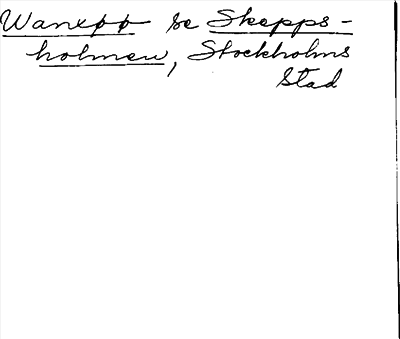 se Skepps-
holmen, Stockholms
Stad